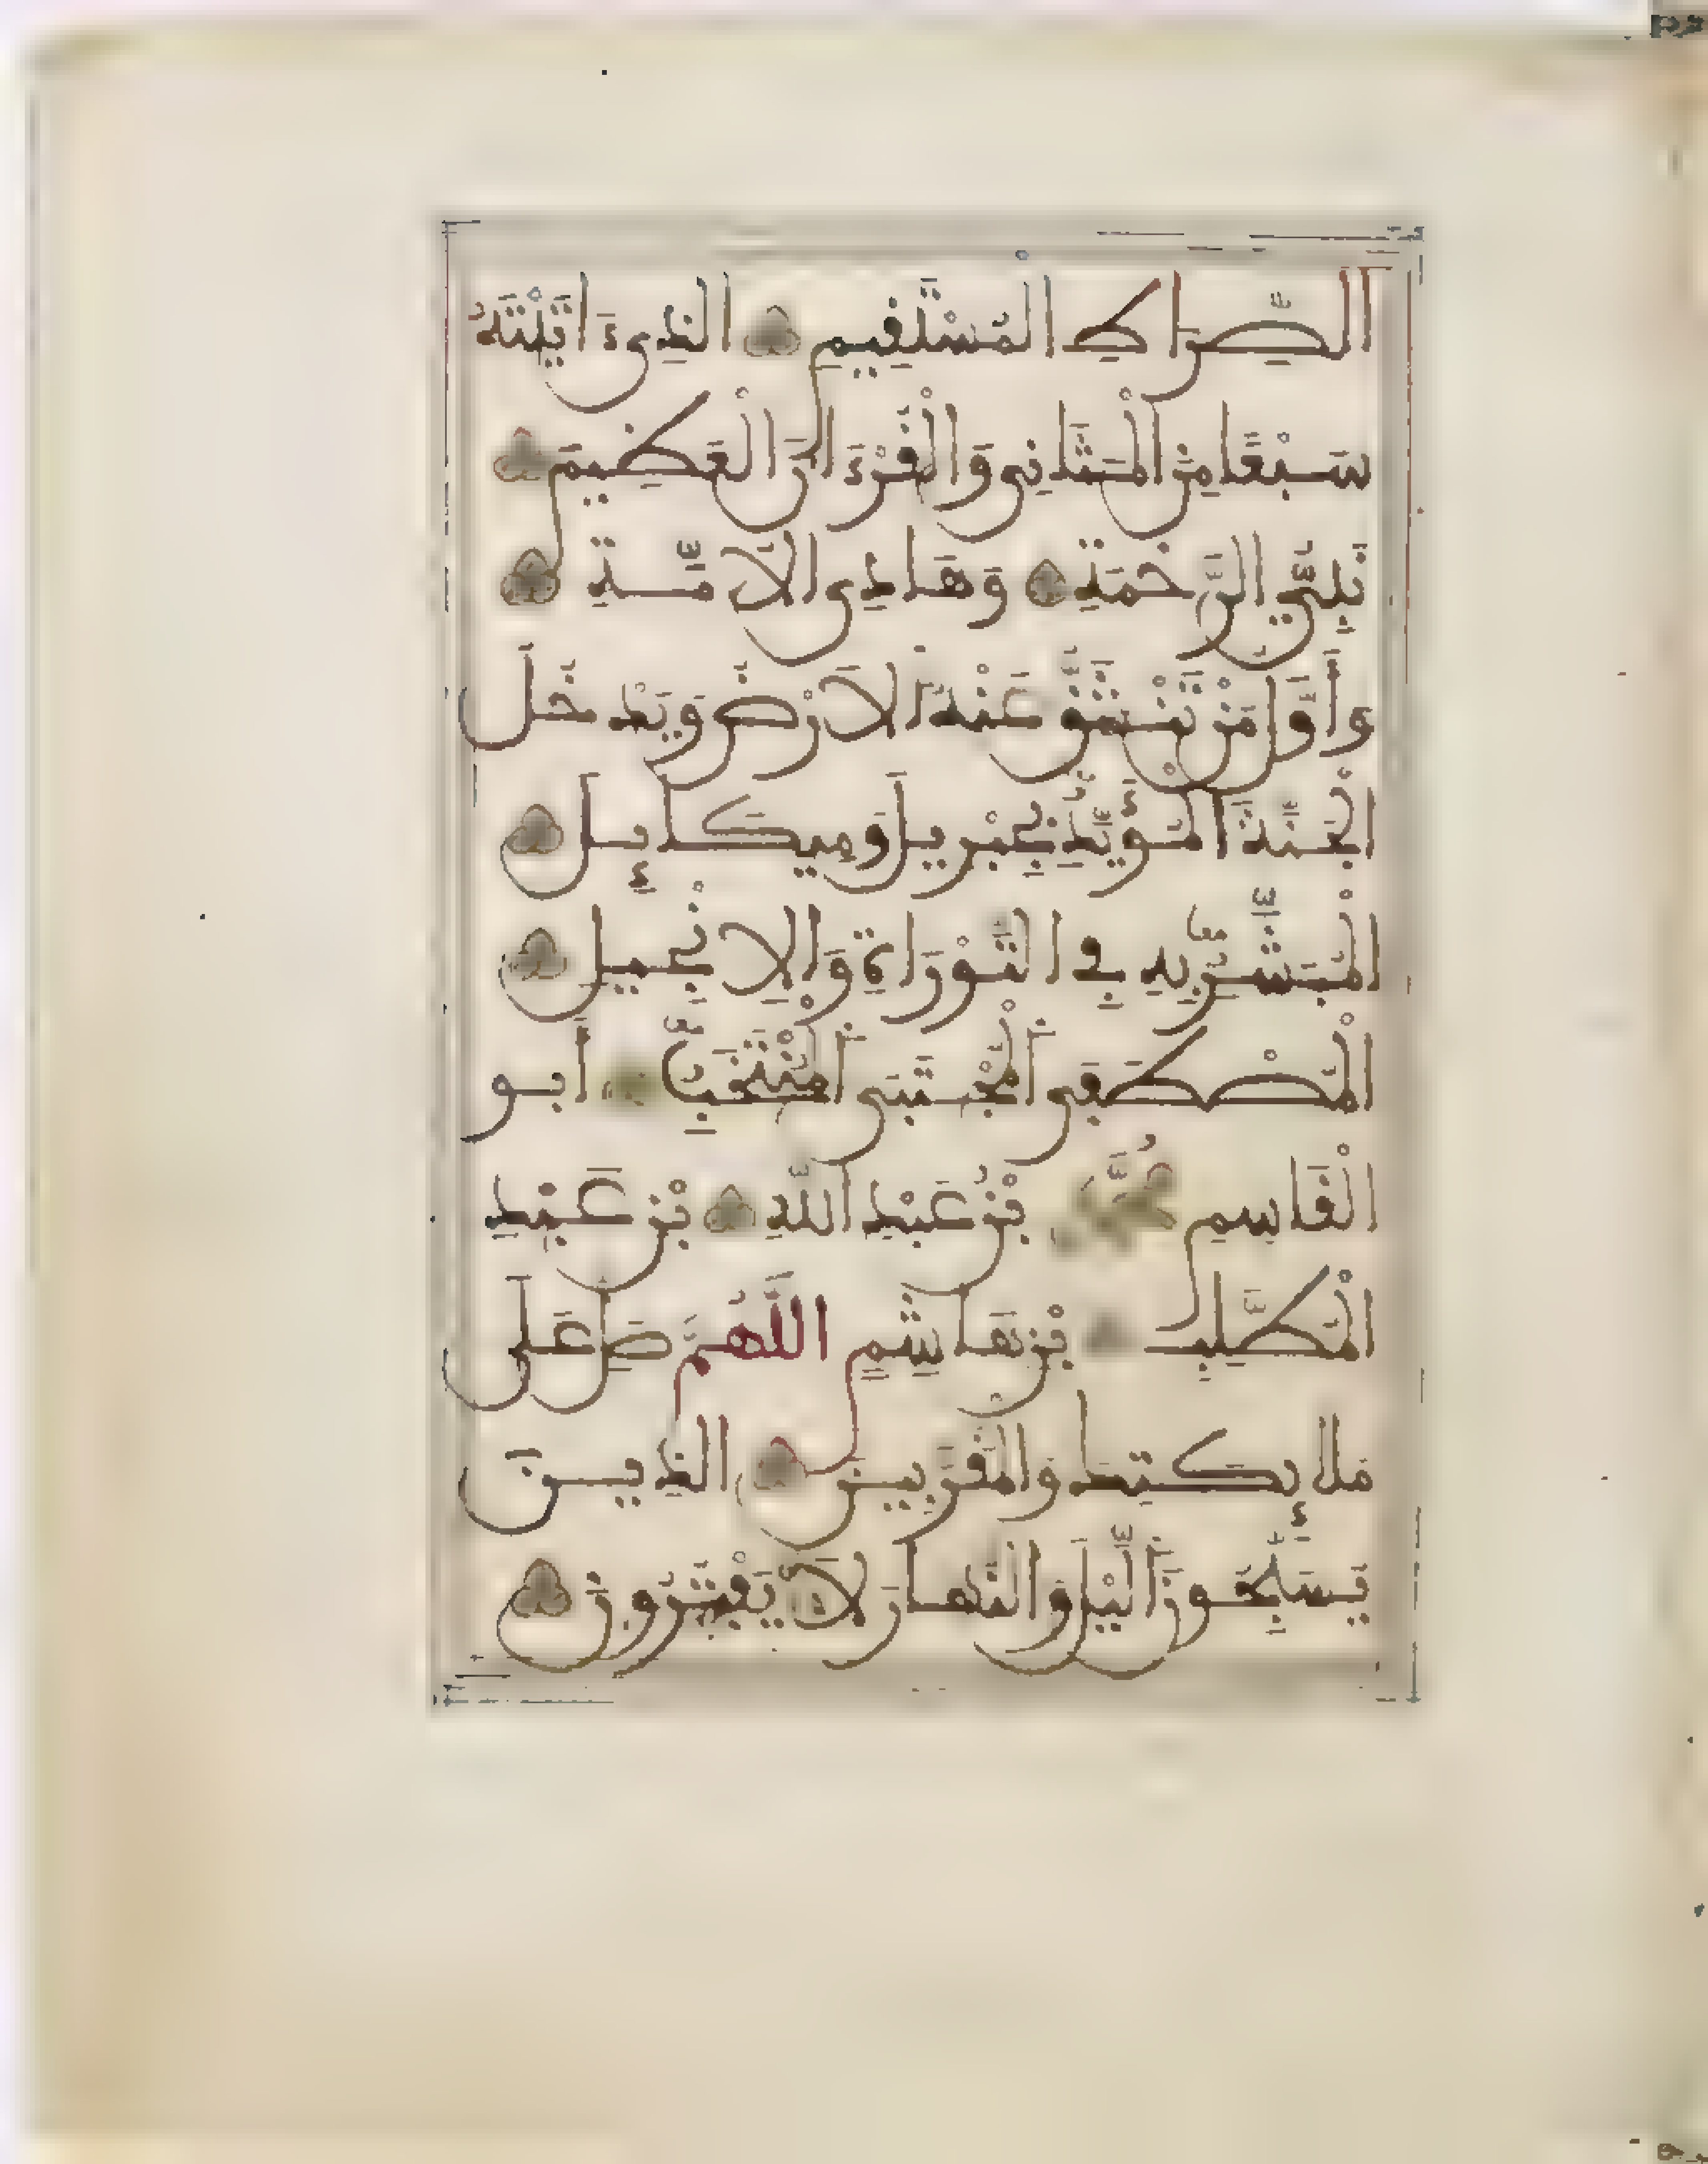 الصِّرَاطِ الْمُسْتَقِيمِ الذِي ءَاتَيْتَهُ
سَبْعًا مِنَ الْمَثَانِي وَالْقُرْءَانَ الْعَظِيمَ
نَبِيِّ الرَّحْمَةِ وَهَادِي الْأُمَّةِ
وَأَوَّلِ مَنْ تَنْشَقُّ عَنْهُ الْأَرْضُ وَيَدْخُلُ
الْجَنَّةَ الْمُؤَيَّدِ بِجِبْرِيلَ وَمِيكَائِيلَ
الْمُبَشَّرِ بِهِ فِي التَّوْرَاةِ وَالْإِنْجِيلِ
الْمُصْطَفَى الْمُجْتَبَى الْمُنْتَخَبِ أَبُو
الْقَاسِمِ مُحَمَّدِ بْنِ عَبْدِ اللَّهِ بْنِ عَبْدِ
الْمُطَّلِبِ بْنِ هَاشِمٍ اللَّهُمَّ صَلِّ عَلَى
مَلَائِكَتِكَ وَالْمُقَرَّبِينَ الذِينَ
يُسَبِّحُونَ الَّيْلَ وَالنَّهَارَ لَا يَفْتُرُونَ